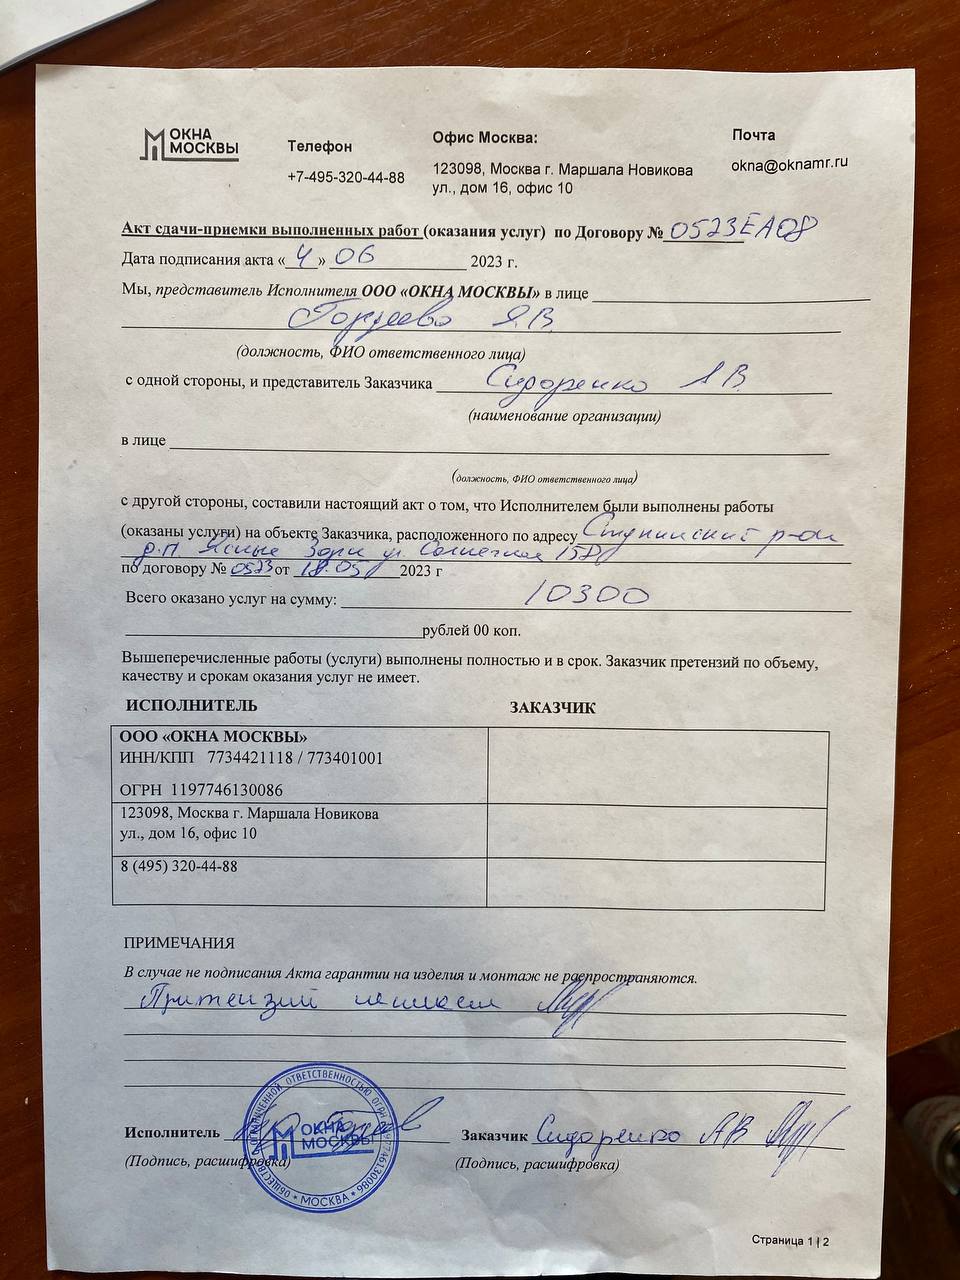 ОКНА
МОСКВЫ
Телефон
+7-495-320-44-88
Офис Москва:
123098, Москва г. Маршала Новикова
ул., дом 16, офис 10
Почта
okna@oknamr.ru
Акт сдачи-приемки выполненных работ (оказания услуг) по Договору № 0523ЕА08
Дата подписания акта « 4 » 06 2023 г.
Мы, представитель Исполнителя ООО «ОКНА МОСКВЫ» в лице
(должность, ФИО ответственного лица)
с одной стороны, и представитель Заказчика Сидоренко А В.
(наименование организации)
в лице
(должность, ФИО ответственного лица)
с другой стороны, составили настоящий акт о том, что Исполнителем были выполнены работы
(оказаны услуги) на объекте Заказчика, расположенного по адресу Ступинский р-он
д.п. Ясные Зори ул. Солнечная
по договору № 0523 от 18.05 2023 г
Всего оказано услуг на сумму: 10300
рублей 00 коп.
Вышеперечисленные работы (услуги) выполнены полностью и в срок. Заказчик претензий по объему,
качеству и срокам оказания услуг не имеет.
ИСПОЛНИТЕЛЬ ЗАКАЗЧИК
ООО «ОКНА МОСКВЫ»
ИНН/КПП 7734421118 / 773401001
ОГРН 1197746130086
123098, Москва г. Маршала Новикова
ул., дом 16, офис 10
8 (495) 320-44-88
ПРИМЕЧАНИЯ
В случае не подписания Акта гарантии на изделия и монтаж не распространяются.
Притензий не имеем
Исполнитель
Заказчик Сидоренко АВ
(Подпись, расшифровка)
(Подпись, расшифровка)
ОКНА
МОСКВЫ
МОСКВА
Страница 1 | 2